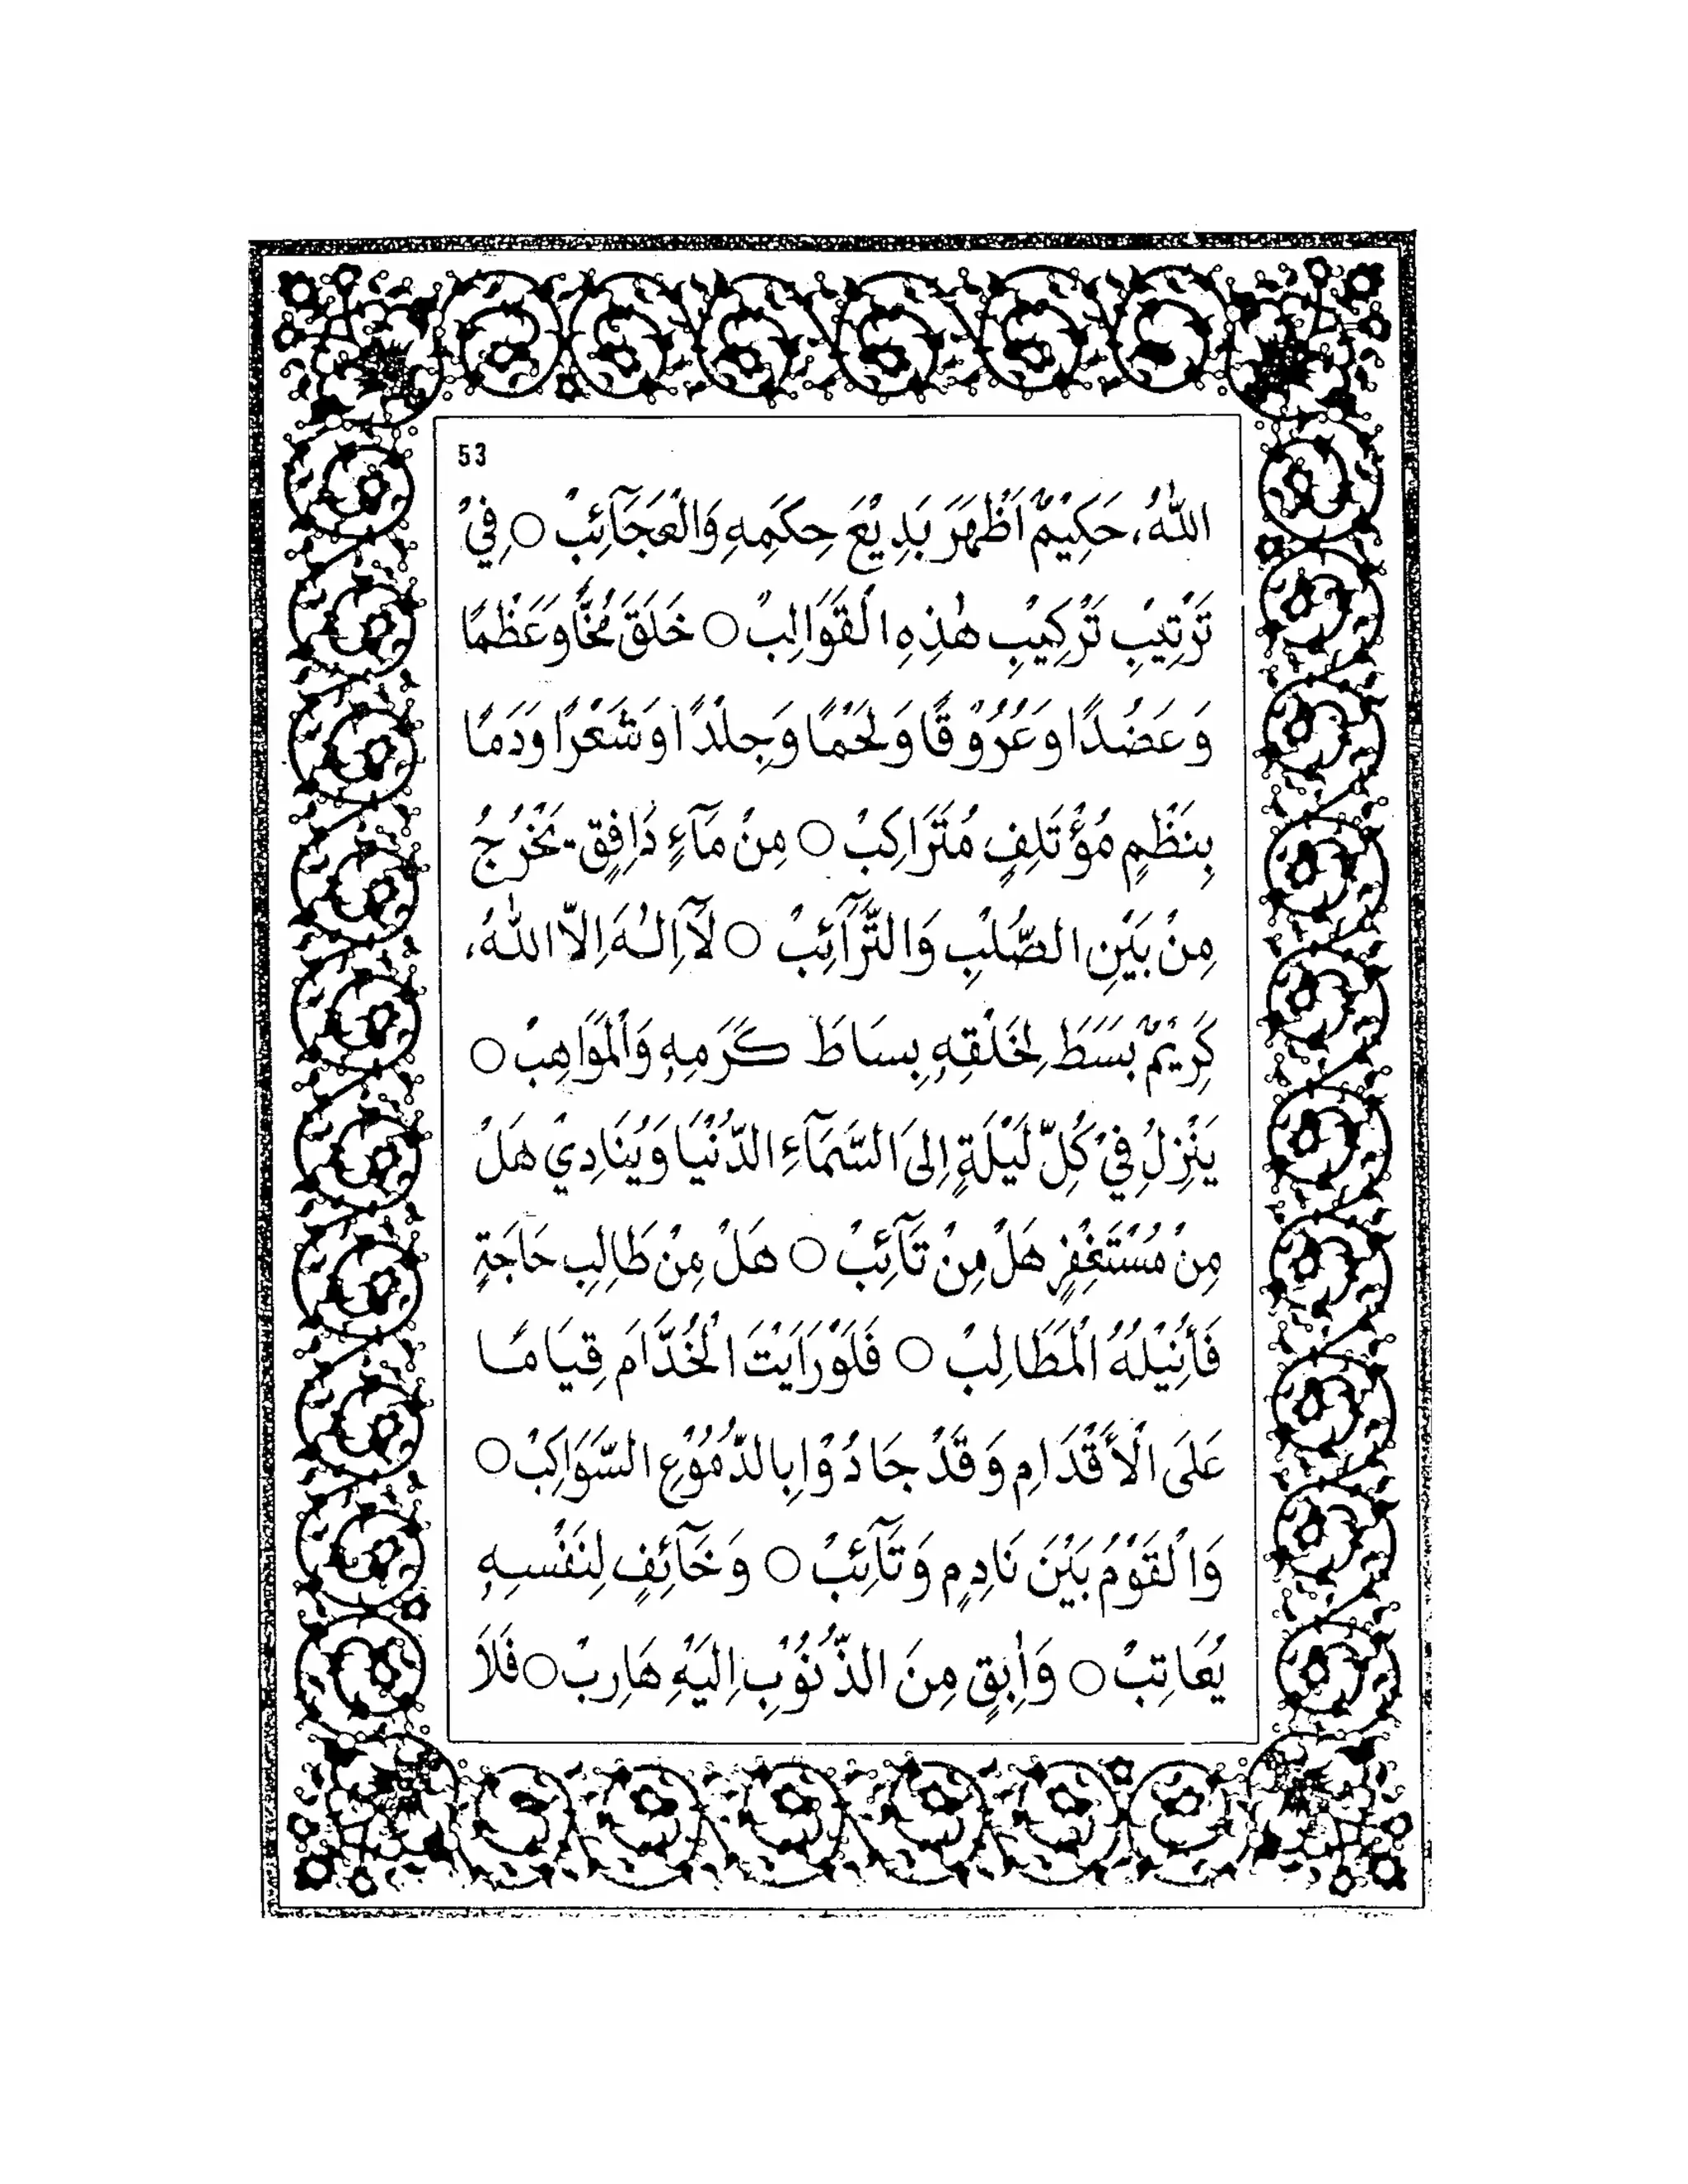 53
اللهُ، حَكِيْمٌ اَظْهَرَ بَدِيْعَ حِكَمِهِ وَالْعَجَآئِبْ ○ فِيْ
تَرْتِيْبِ تَرْكِيْبِ هٰذِهِ الْقَوَالِبْ ○ خَلَقَ مُخًّا وَعَظْمًا
وَعَضُدًا وَعُرُوْقًا وَلَحْمًا وَجِلْدًا وَشَعْرًا وَدَمًا
بِنَظْمٍ مُؤْتَلِفٍ مُتَرَاكِبْ ○ مِنْ مَآءٍ دَافِقٍ-يَخْرُجُ
مِنْ بَيْنِ الصُّلْبِ وَالتَّرَآئِبْ ○ لَآاِلٰهَ اِلاَّ اللهُ،
كَرِيْمٌ بَسَطَ لِخَلْقِهِ بِسَاطَ كَرَمِهِ وَالْمَوَاهِبْ ○
يَنْزِلُ فِيْ كُلِّ لَيْلَةٍ اِلىَ السَّمَآءِ الدُّنْيَا وَيُنَادِيْ هَلْ
مِنْ مُسْتَغْفِرٍ هَلْ مِنْ تَآئِبْ ○ هَلْ مِنْ طَالِبِ حَاجَةٍ
فَأُنِيْلَهُ الْمَطَالِبْ ○ فَلَوْرَاَيْتَ الْخُدَّامَ قِيَامًا
عَلَى الْأَقْدَامِ وَقَدْ جَادُوْا بِالدُّمُوْعِ السَّوَاكِبْ ○
وَالْقَوْمُ بَيْنَ نَادِمٍ وَتَآئِبْ ○ وَخَآئِفٍ لِنَفْسِهِ
يُعَاتِبْ ○ وَاٰبِقٍ مِنَ الذُّنُوْبِ اِلَيْهِ هَارِبْ ○ فَلاَ